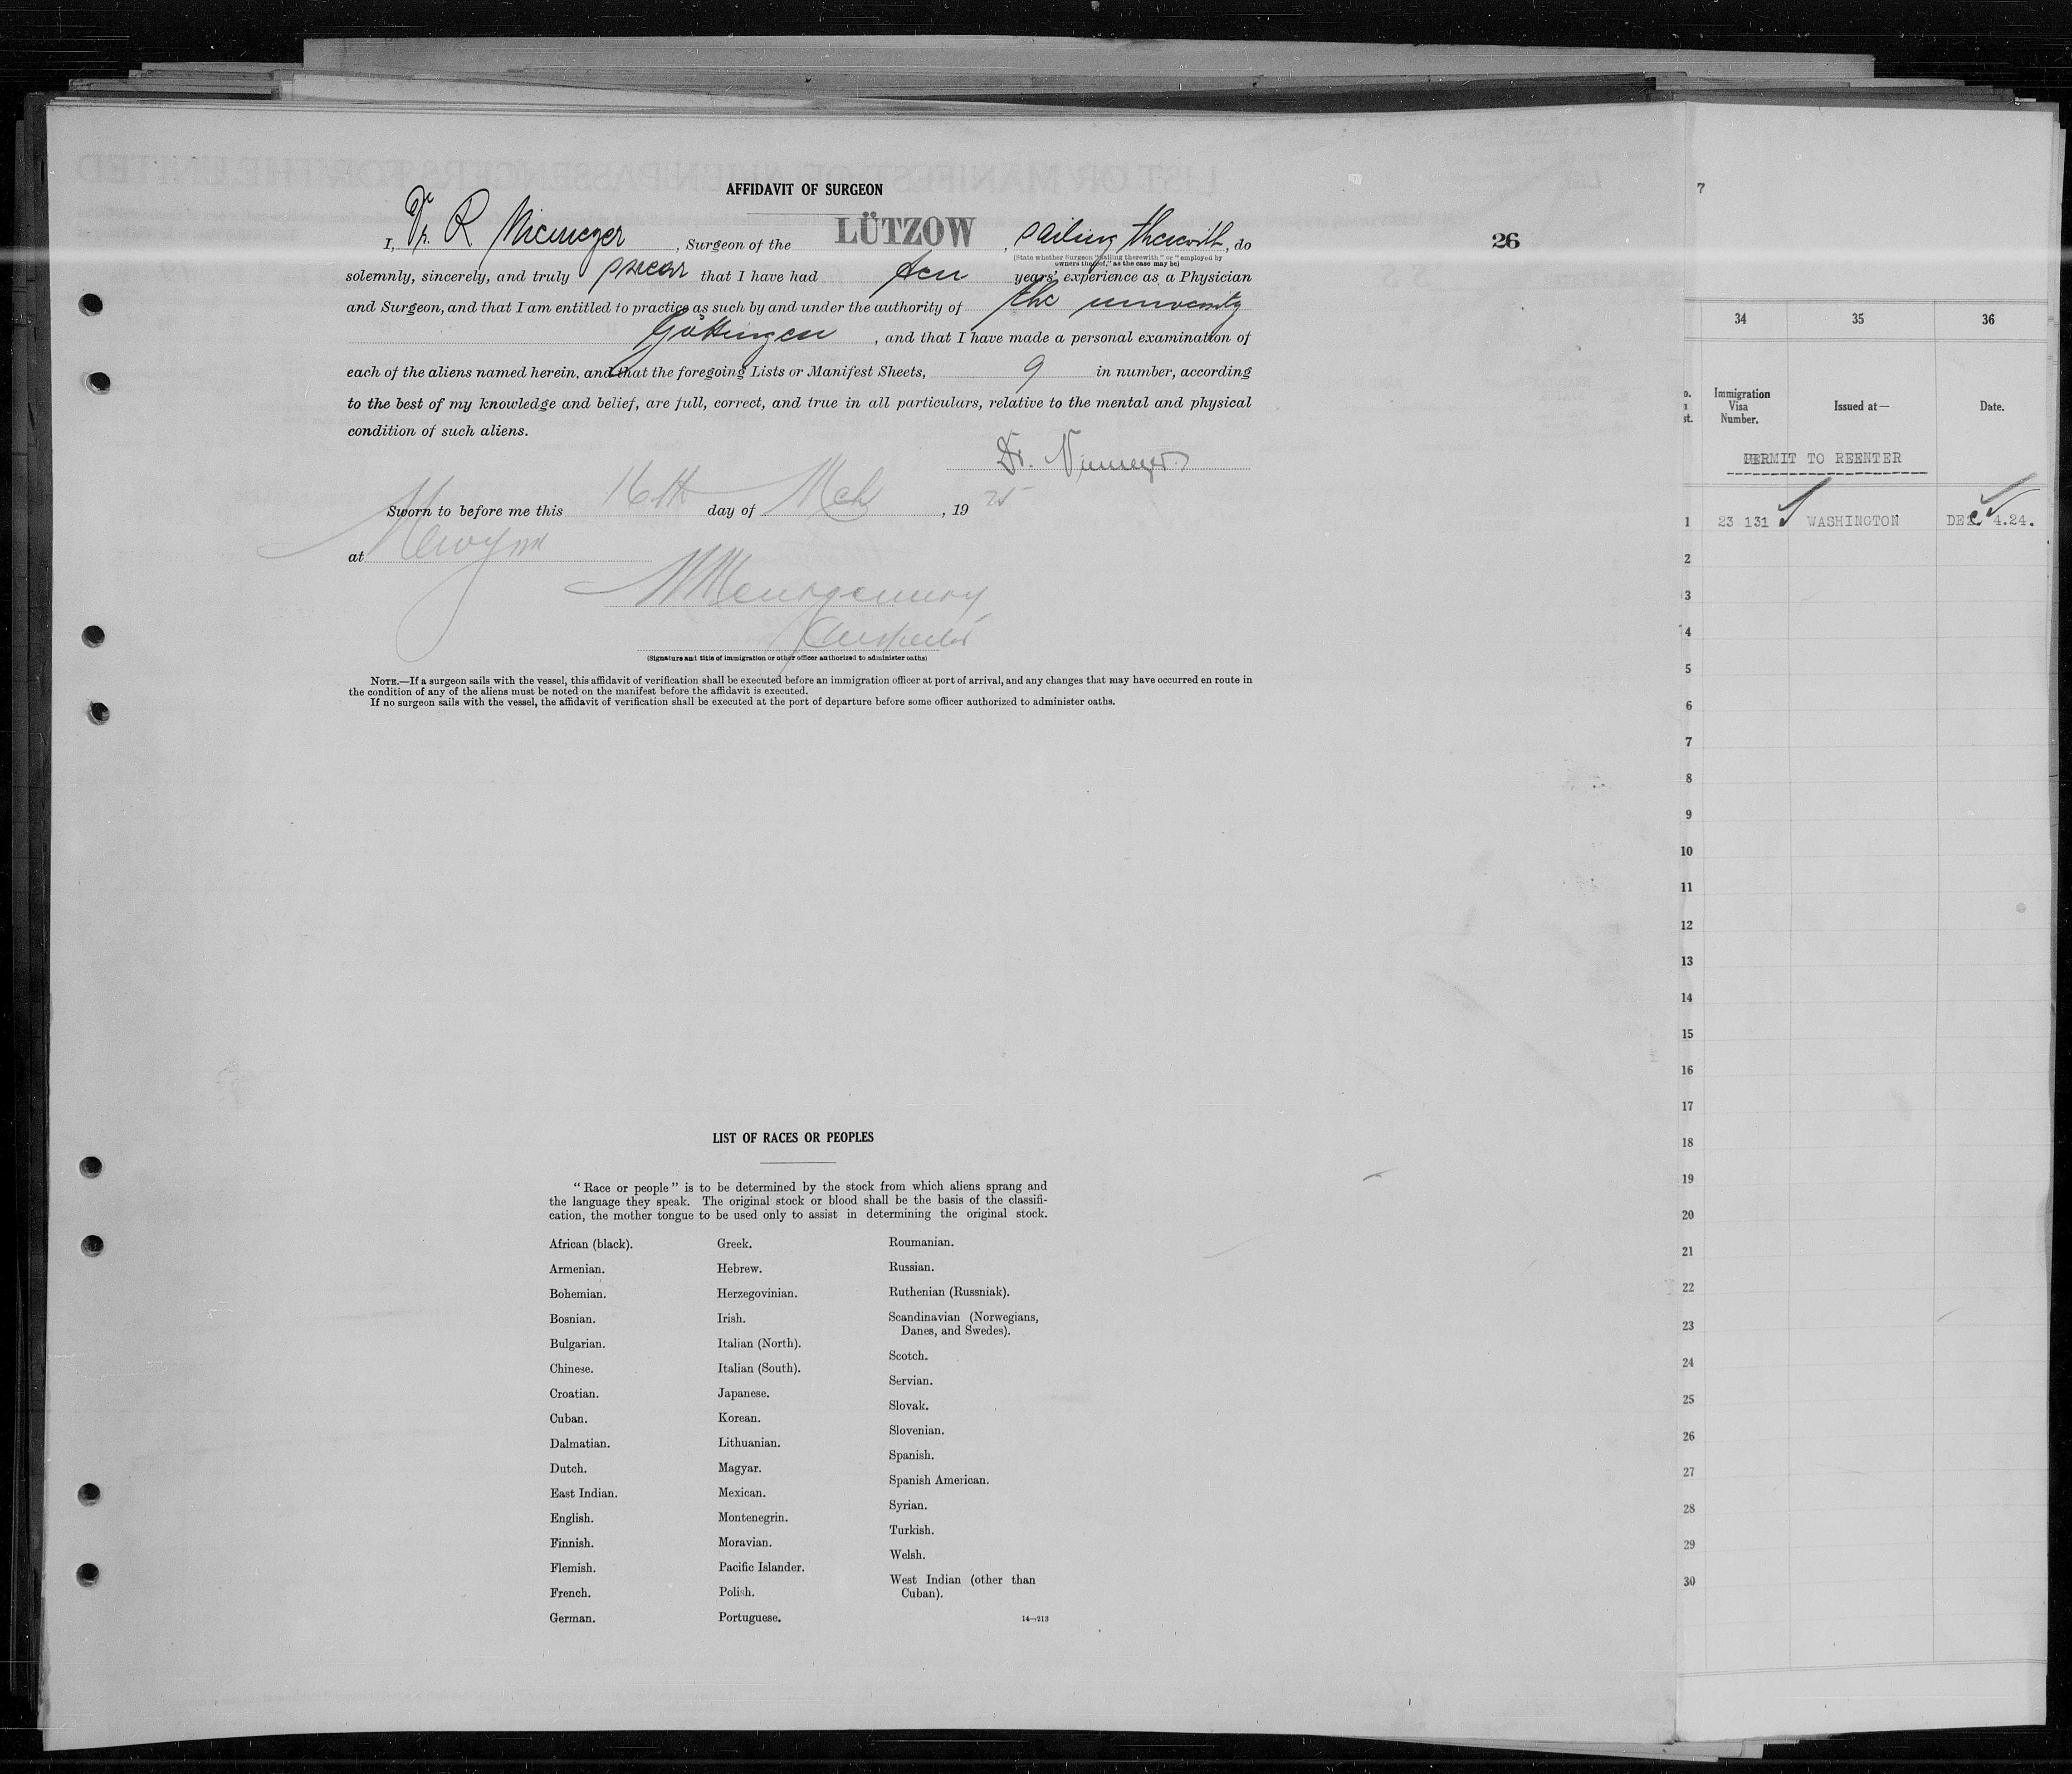 AFFIDAVIT OF SURGEON
I, Dr. R Niemeyer, Surgeon of the LÜTZOW, sailing therewith, do
(State whether Surgeon "sailing therewith" or "employed by
owners thereof," as the case may be)
solemnly, sincerely, and truly swear that I have had ten years' experience as a Physician
and Surgeon, and that I am entitled to practice as such by and under the authority of the university
Göttingen, and that I have made a personal examination of
each of the aliens named herein, and that the foregoing Lists or Manifest Sheets, 9 in number, according
to the best of my knowledge and belief, are full, correct, and true in all particulars, relative to the mental and physical
condition of such aliens.
Dr. Niemeyer
Sworn to before me this 16th day of Mch, 19 25
at
Montgomery
Inspector
(Signature and title of immigration or other officer authorized to administer oaths)
NOTE.—If a surgeon sails with the vessel, this affidavit of verification shall be executed before an immigration officer at port of arrival, and any changes that may have occurred en route in
the condition of any of the aliens must be noted on the manifest before the affidavit is executed.
If no surgeon sails with the vessel, the affidavit of verification shall be executed at the port of departure before some officer authorized to administer oaths.
26
LIST OF RACES OR PEOPLES
"Race or people" is to be determined by the stock from which aliens sprang and
the language they speak. The original stock or blood shall be the basis of the classifi-
cation, the mother tongue to be used only to assist in determining the original stock.
African (black).
Armenian.
Bohemian.
Bosnian.
Bulgarian.
Chinese.
Croatian.
Cuban.
Dalmatian.
Dutch.
East Indian.
English.
Finnish.
Flemish.
French.
German.
Greek.
Hebrew.
Herzegovinian.
Irish.
Italian (North).
Italian (South).
Japanese.
Korean.
Lithuanian.
Magyar.
Mexican.
Montenegrin.
Moravian.
Pacific Islander.
Polish.
Portuguese.
Roumanian.
Russian.
Ruthenian (Russniak).
Scandinavian (Norwegians,
Danes, and Swedes).
Scotch.
Servian.
Slovak.
Slovenian.
Spanish.
Spanish American.
Syrian.
Turkish.
Welsh.
West Indian (other than
Cuban).
14—213
7
34 35 36
Immigration
Visa
Number.
Issued at—
Date.
PERMIT TO REENTER
1 23 131 WASHINGTON DEC. 4.24.
2
3
4
5
6
7
8
9
10
11
12
13
14
15
16
17
18
19
20
21
22
23
24
25
26
27
28
29
30